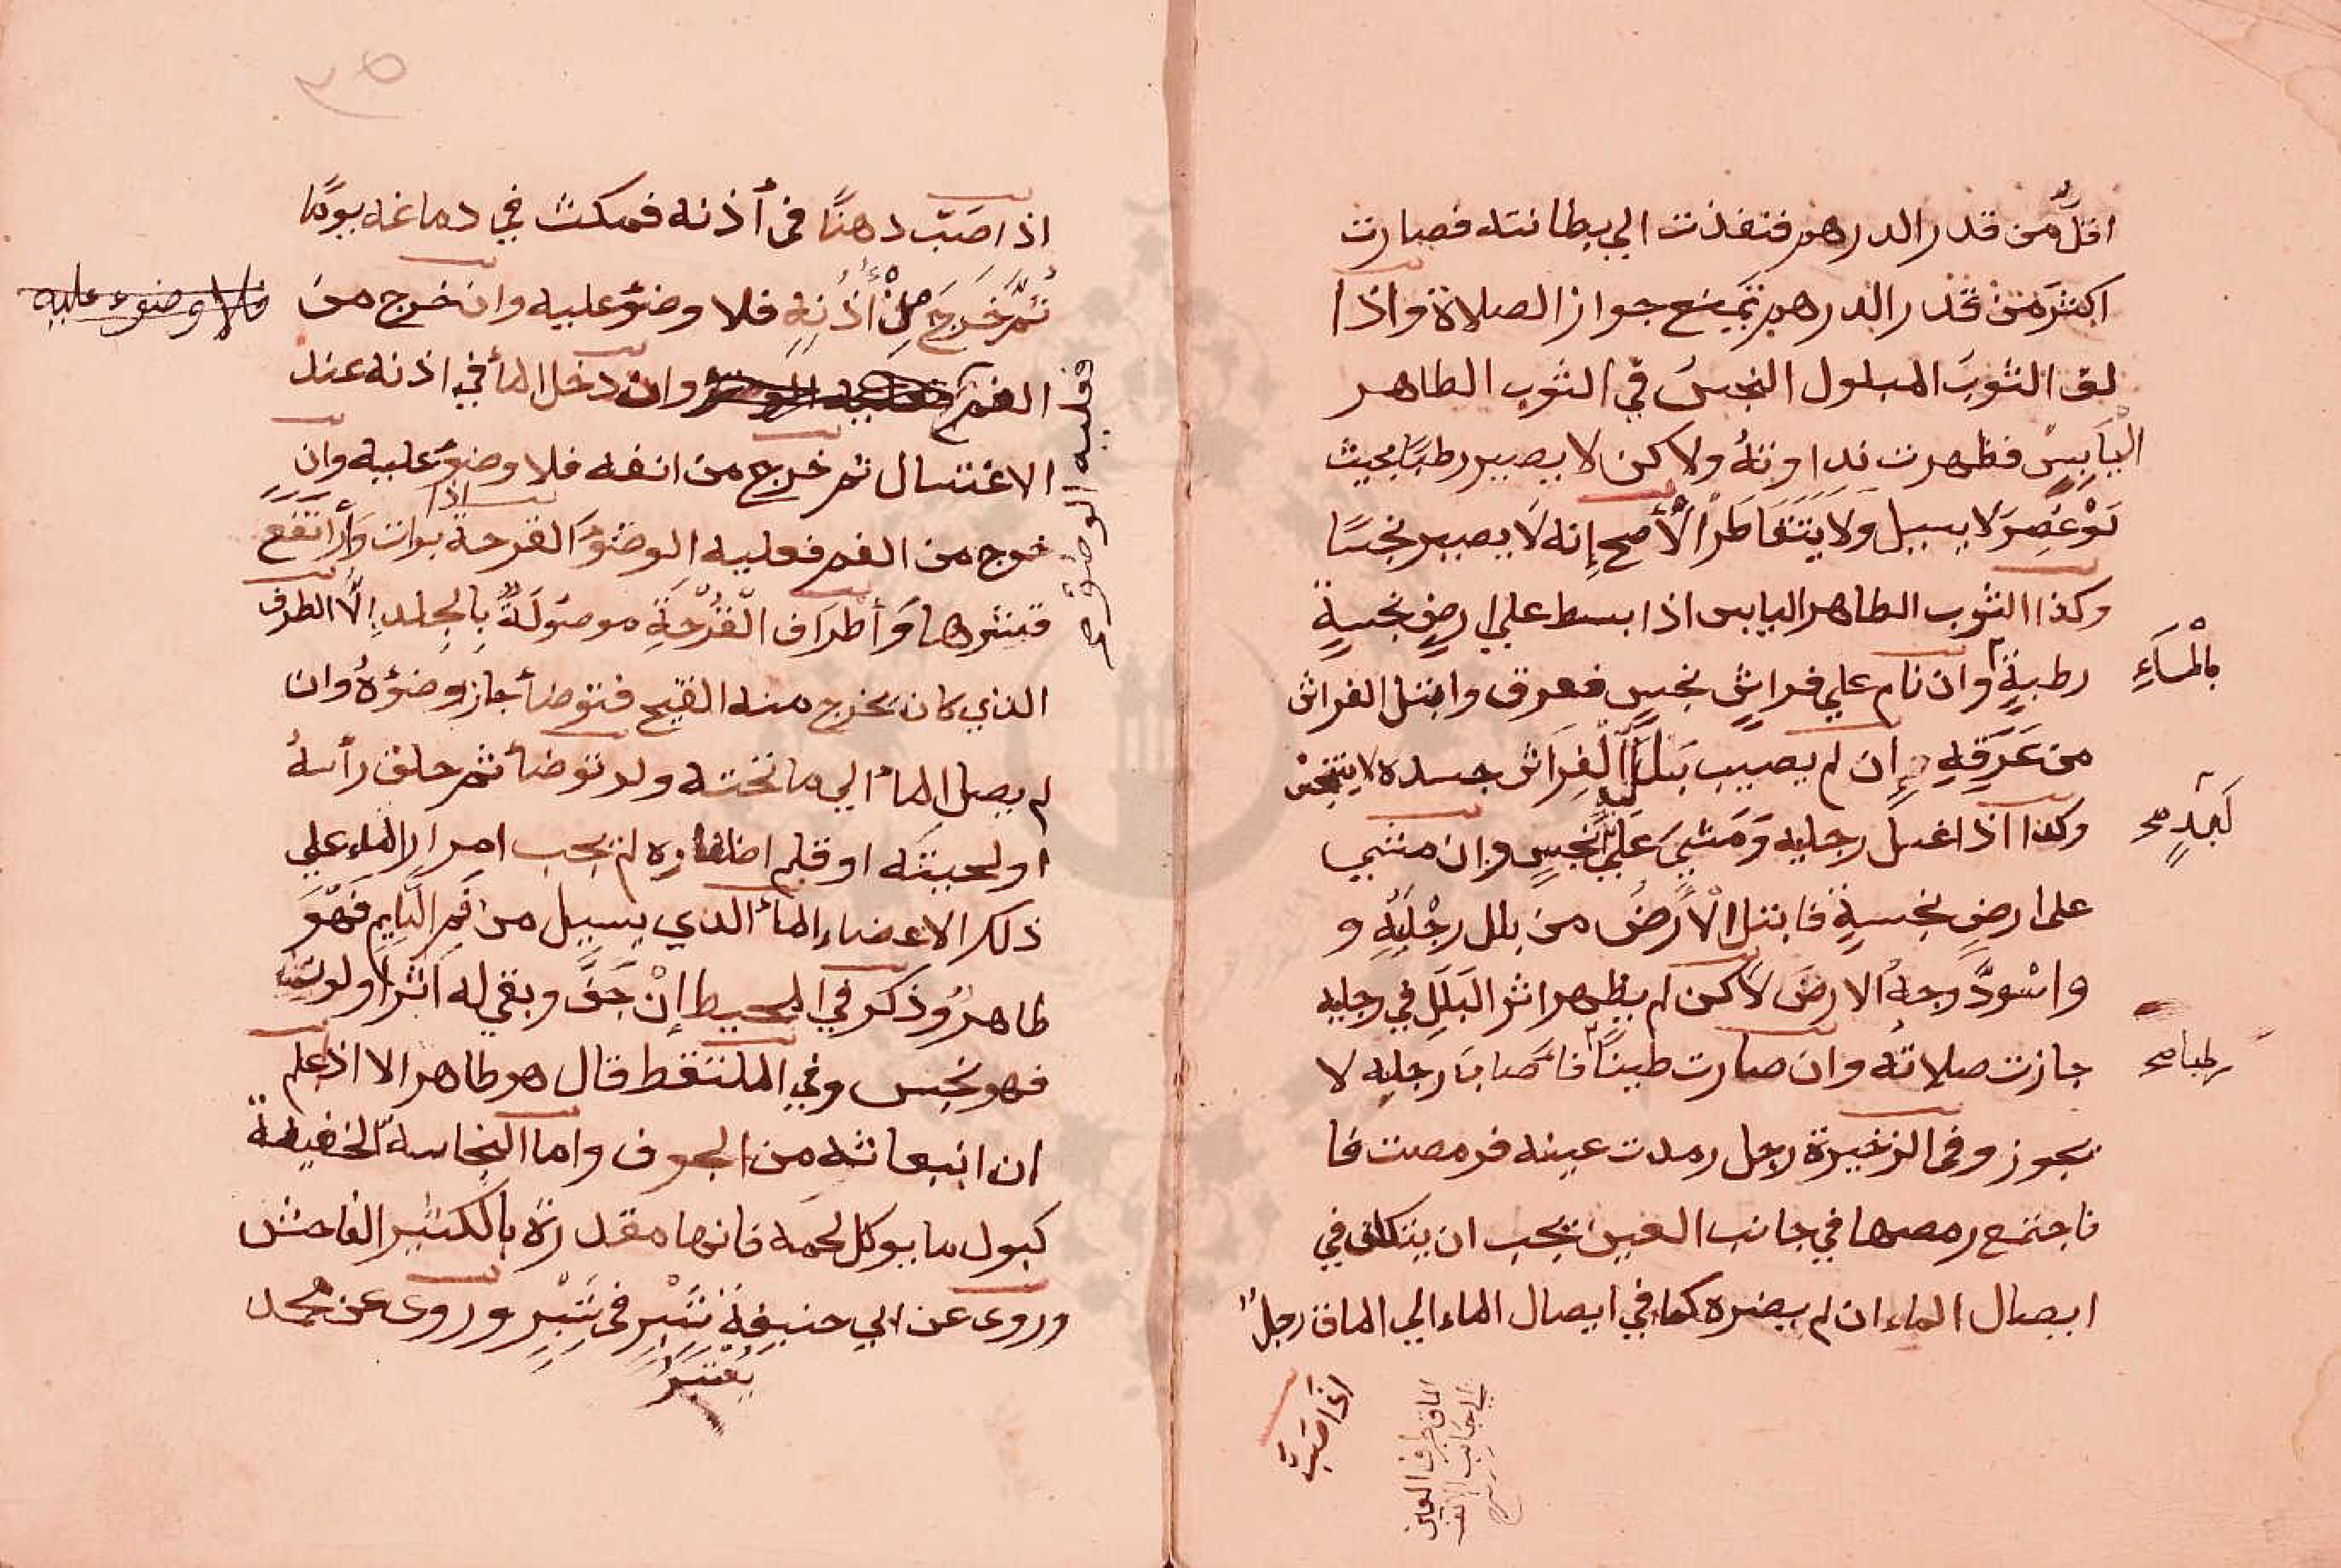 اقلُّ من قدر الدرهم فنفذت الي بطانته فصارت
اكثرَ من قدر الدرهم يَمنع جواز الصلاة واذا
لف الثوبَ المبلول النجسُ في الثوب الطاهر
الْيَابِسْ فظهرت نداوتهُ ولاكن لا يصير رطبًا بحيث
لَوْ عُصِرَ لا يسيل وَلا يَتَقَاطَرْ الْأَصح إنه لَا يصير نجسًا
وكذا الثوب الطاهر اليابس اذا بسط علي ارضٍ نجسةٍ
رطبةٍ وان نام علي فراشٍ نجسٍ فعرق وابتل الفراش
بالْمَاءِ
من عَرَقِهِ إن لم يصيب بَلَلُ الْفِرَاش جسده لا يتنجس
وكذا اذا غسل رجليه وَمَشِيَ عَلَيَ نجسٍ وان مشي
لَبَدٍ صح
على ارض نجسةٍ فابتل الْأَرْضُ من بلل رِجْلَيْهِ و
واسْودَّ وجهُ الارضَ لَاكن لم يظهر اثر البَلَلِ في رجليه
جازت صلاتهُ وان صارت طينًا فأَصابَ رجليه لا
رطبا صح
يجوز وفى الزخيرة رجل رمدت عينه فرمصت فا
فاجتمع رمصها في جانب العين يجب ان يتكلف في
ايصال الماء ان لم يضره كما في ايصال الماء الي الماق رجلٌ
الماق طرف العين
اذَا صَبَّ
اذا صَبّ دهنًا فى أذنه فمكث في دماغه يومًا
ثُمَّ خَرَجَ مِنْ أُذُنِهِ فلا وضوُ عليه وان خرج من
فلا وضوء عليه
الفم فعليه الوضوُ وان دخل المأ في اذنه عند
فعليه الوضوُ صح
الاغتسال ثم خرج من انفه فلا وضوُ عليه وان
خرج من الفم فعليه الوضوُ القرحة اذا برات وَارْتَفَعَ
قِشرها وَأَطْرَاف الْقُرْحَةِ موصُولَةٌ بِالجلدِ إلَّا الطرف
الذي كان يخرج منه القيح فتوضأ جاز وضؤهُ وان
لم يصل المأ الي ما تحته ولو توضأ ثم حلق رأسهُ
او لحيتَه او قلم اظفاره لم يجب امرار الماء علي
ذلك الاعضاء المأ الذي يسيل من فَمِ النَّايمِ فَهْوَ
طاهرٌ وُذكَر في المحيط إنْ جَفَّ وبقي له اثرًا او لونٌ
فهو نجس وفي الملتقط قال هو طاهر الا اذا علم
ان انبعاثه من الجوف واما النجاسة الخفيفة
كبول ما يوكل لحمه فانها مقدرة بالكثير الفاحش
وروى عن ابي حنيفة شَبْرٍ فى شَبْرٍ وروى عن محمد